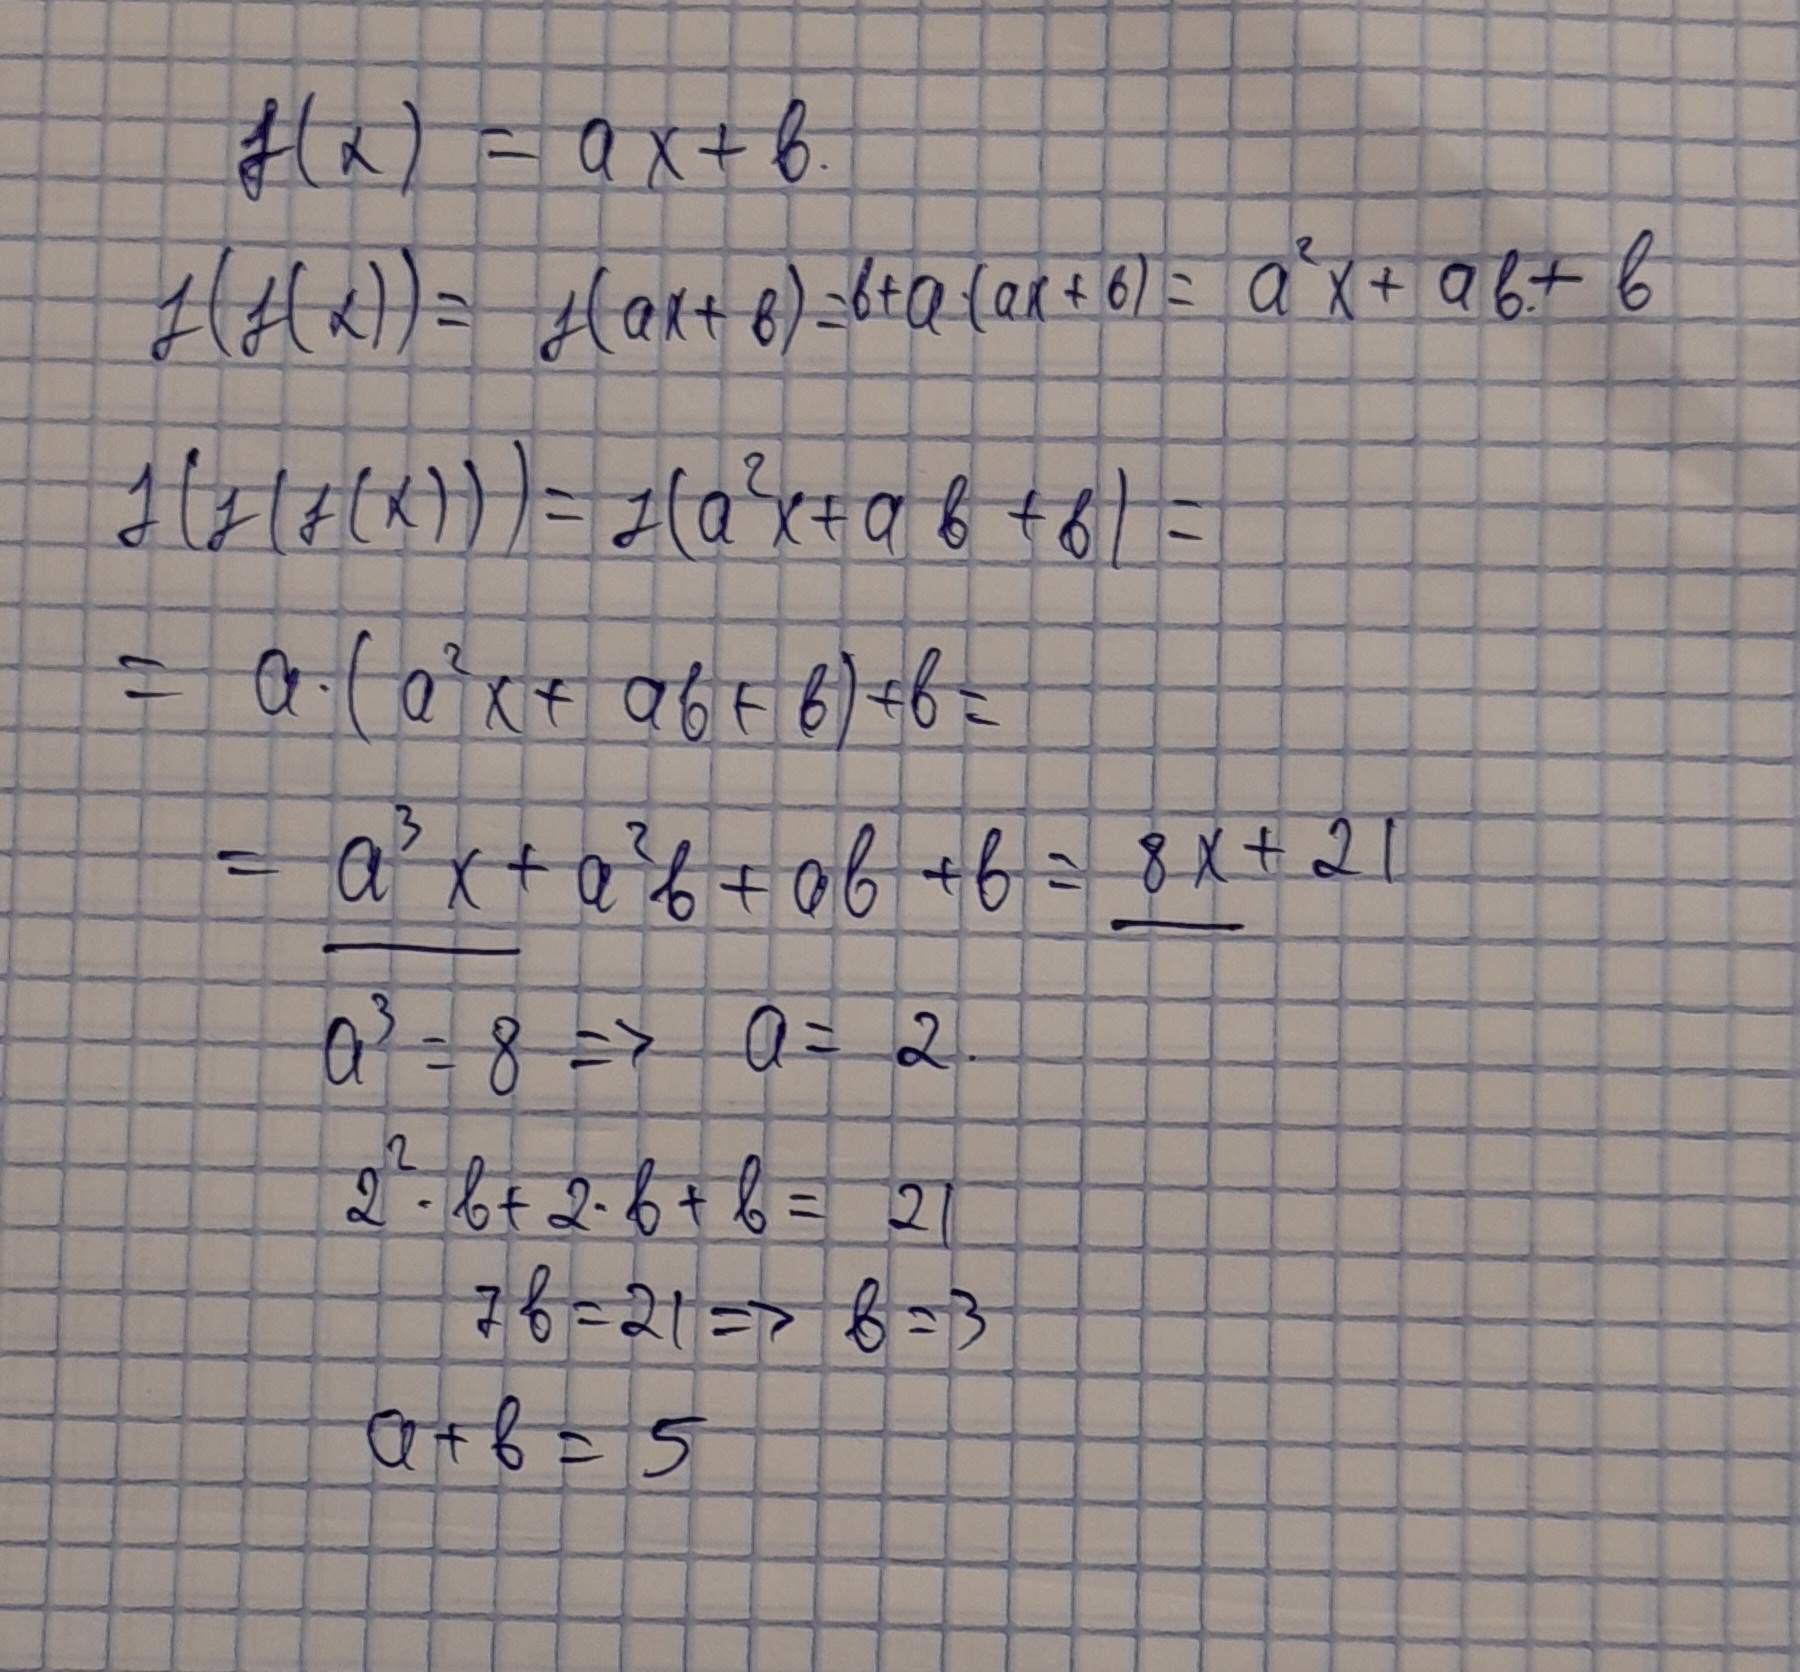 f(x) = ax + b.
f(f(x)) = f(ax + b) = b + a·(ax + b) = a²x + ab + b
f(f(f(x))) = f(a²x + ab + b) =
= a·(a²x + ab + b) + b =
= a³x + a²b + ab + b = 8x + 21
a³ = 8 => a = 2.
2²·b + 2·b + b = 21
7b = 21 => b = 3
a + b = 5